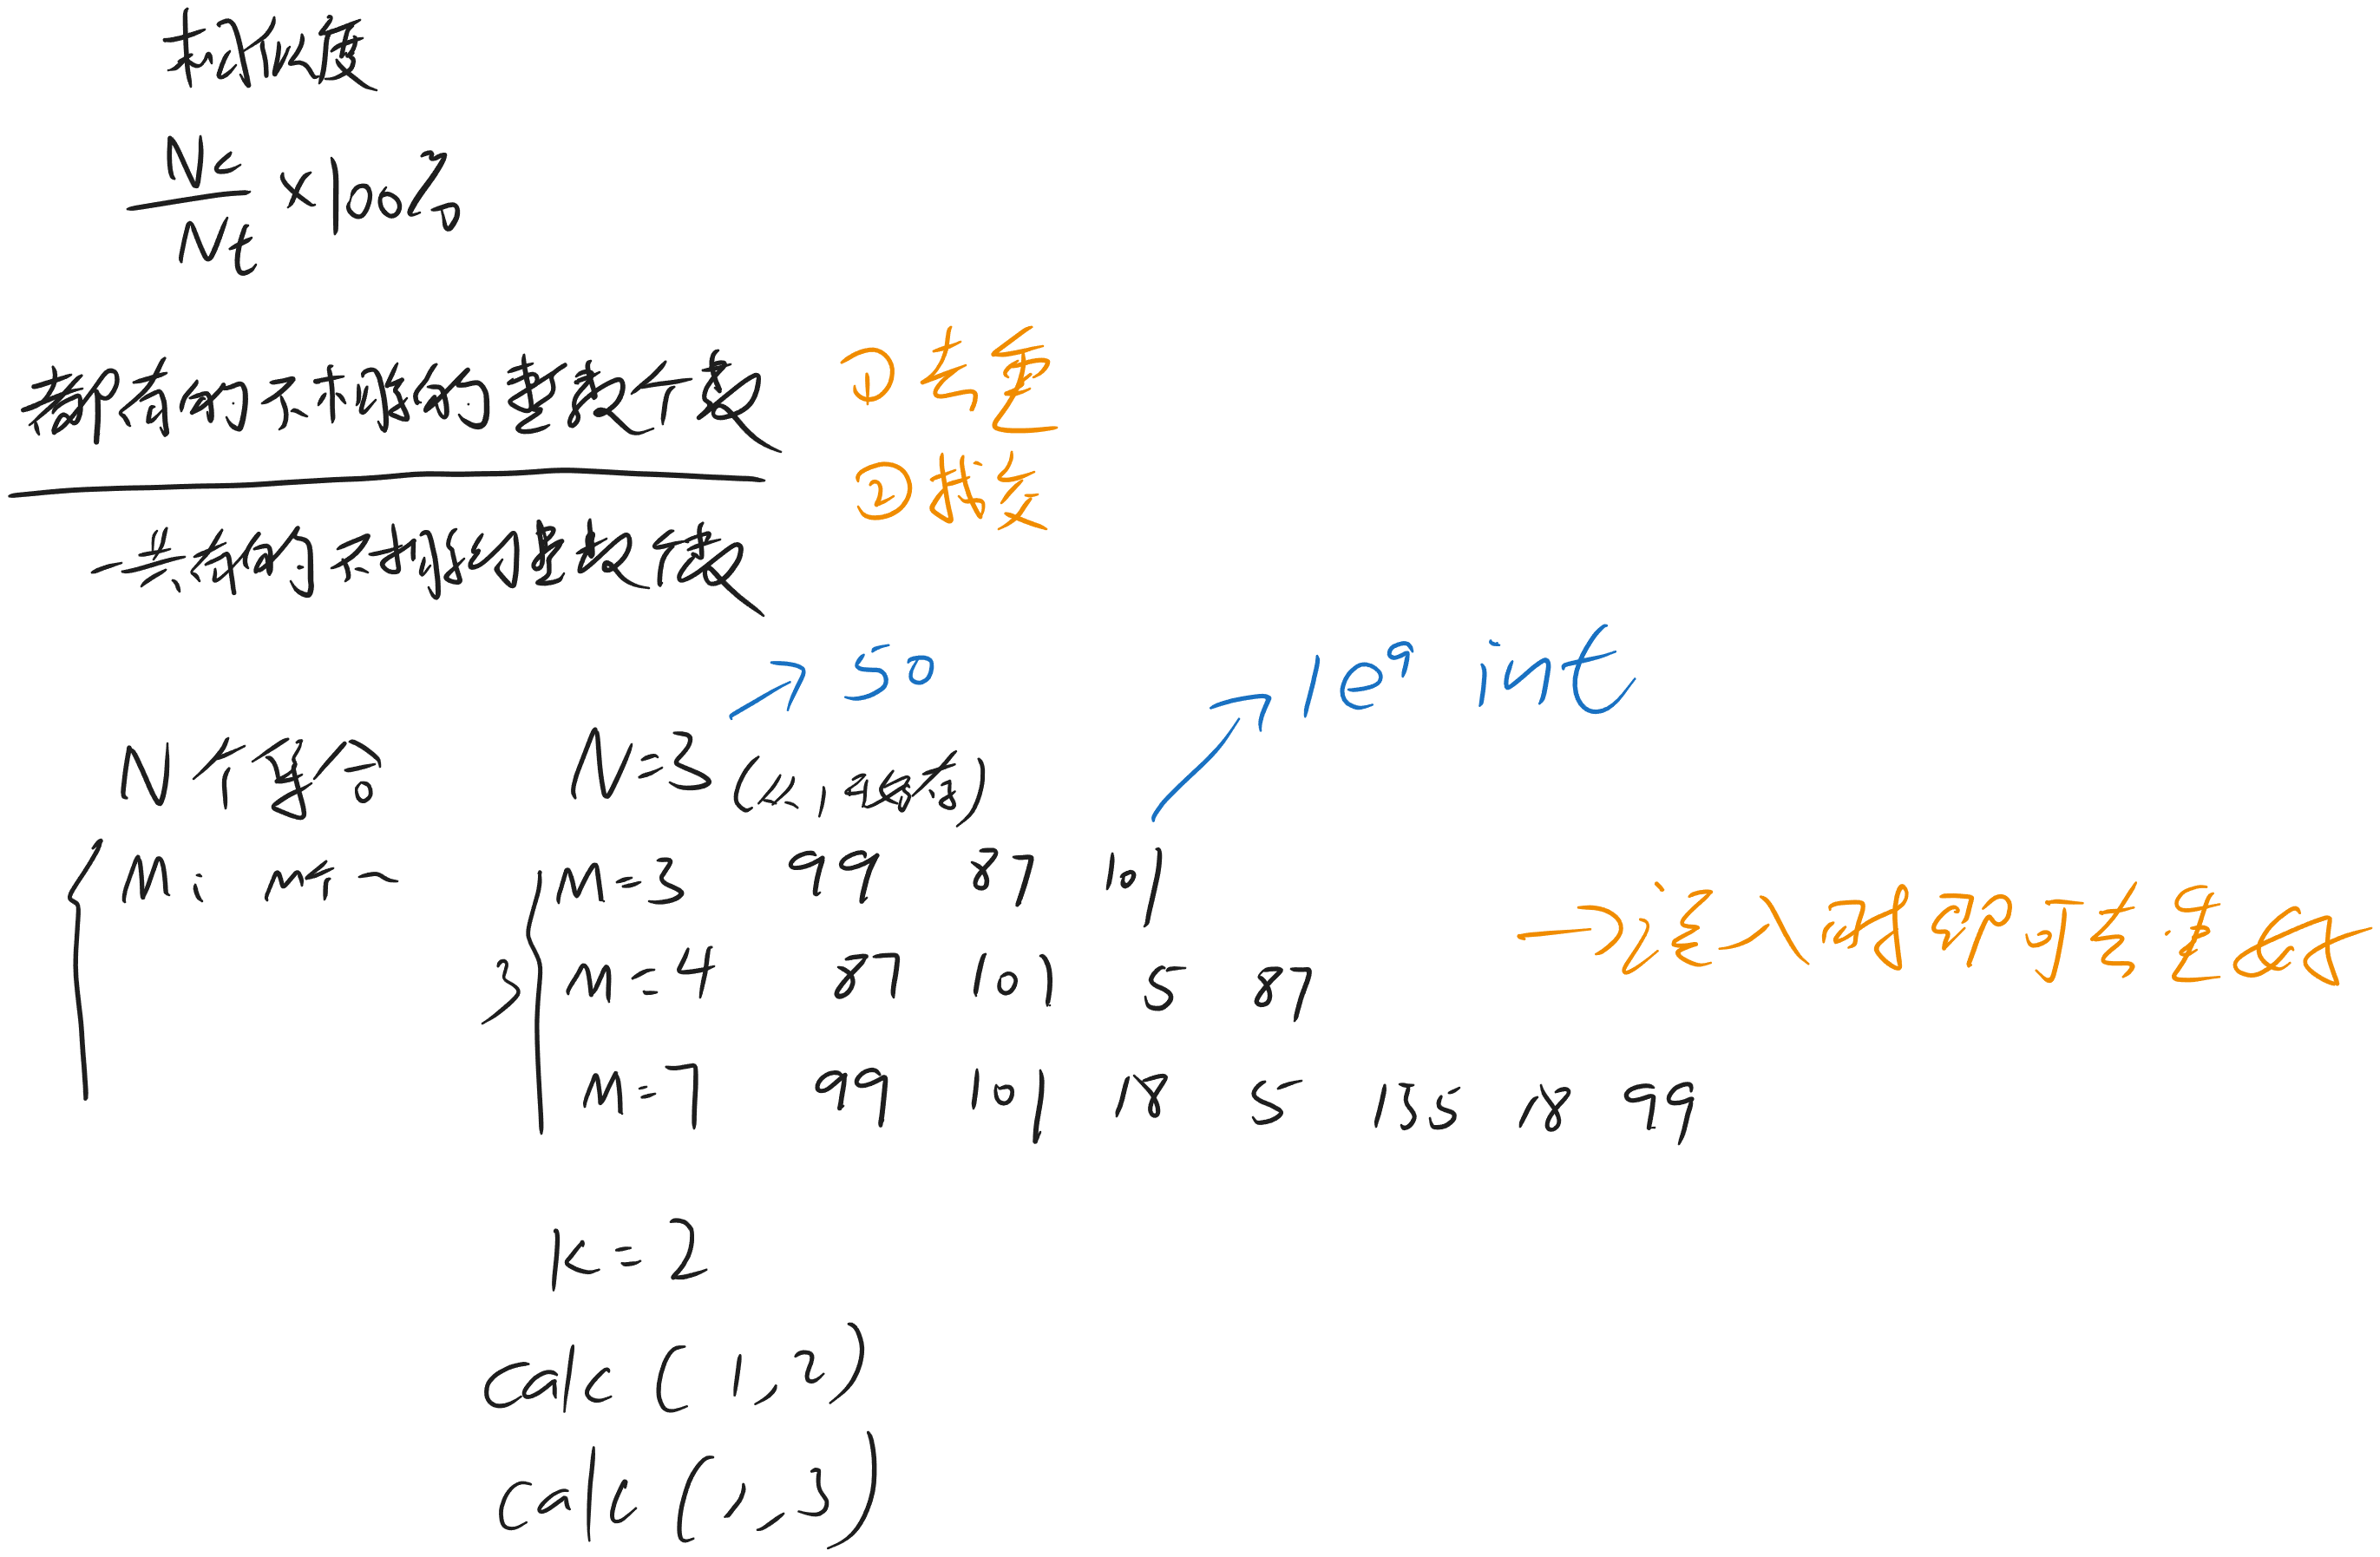 求相似度
Nc
Nt
×100%
都有的不相等的整数个数
一共的不相等的整数个数
① 去重
② 找交
→ 50
1e9 int
N个集合
N=3
(1, 接着)
M: M个~
M=3 99 87 101
M=4 87 101 5 87
M=7 99 101 18 5 135 18 99
3
→ 注入时即可去重好
K=2
calc (1,2)
calc (1,3)